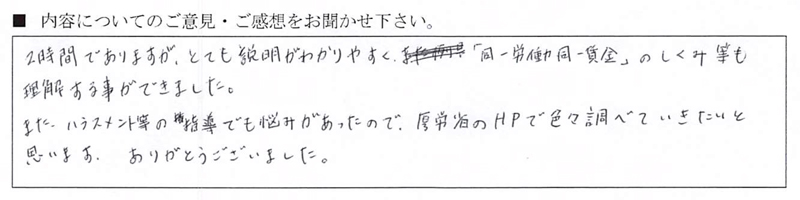 ■ 内容についてのご意見・ご感想をお聞かせ下さい。
2時間でありますが、とても説明がわかりやすく、「同一労働同一賃金」のしくみ等も
理解する事ができました。
また、ハラスメント等の指導でも悩みがあったので、厚労省のHPで色々調べていきたいと
思います。ありがとうございました。